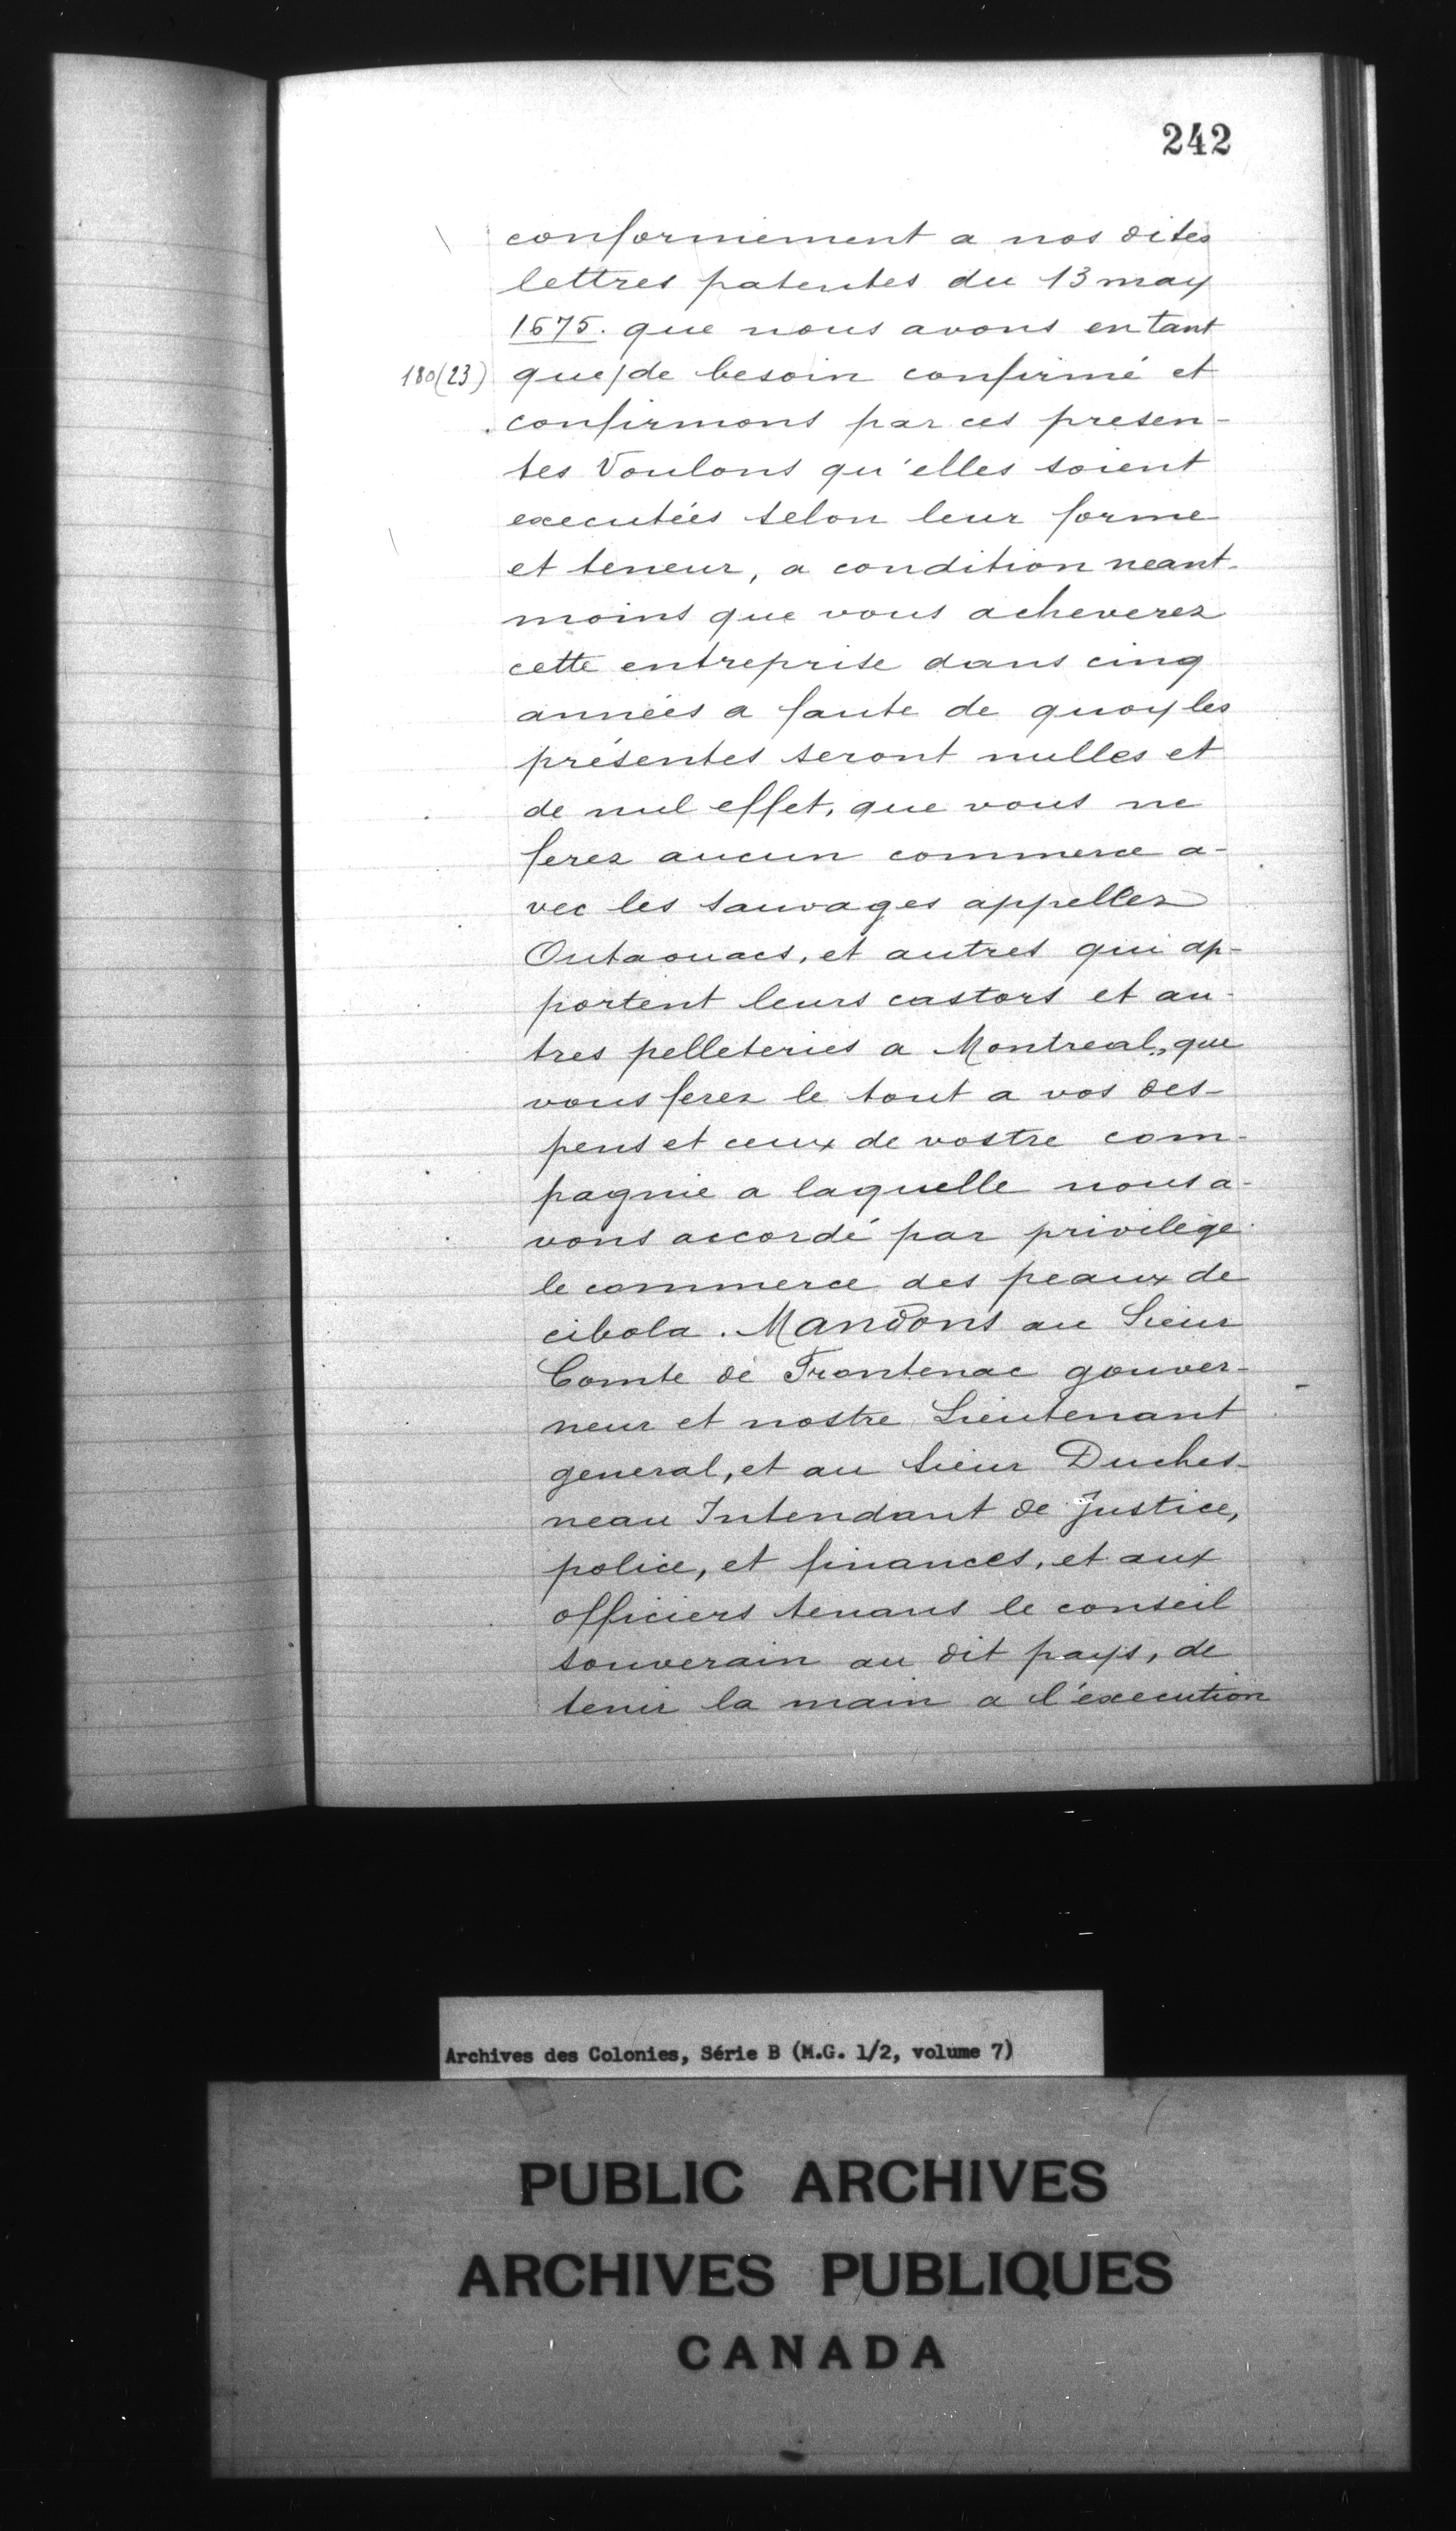 242
conformement a nos dites
lettres patentes du 13 may
1675. que nous avons en tant
180(23) que/de besoin confirmé et
confirmons par ces presen-
tes Voulons qu'elles soient
executées selon leur forme
et teneur, a condition neant-
moins que vous acheverez
cette entreprise dans cinq
années a faute de quoy les
présentes seront nulles et
de nul effet, que vous ne
ferez aucun commerce a-
vec les sauvages appellez
Outaouacs, et autres qui ap-
portent leurs castors et au-
tres pelleteries a Montreal, que
vous ferez le tout a vos des-
pens et ceux de vostre com-
pagnie a laquelle nous a-
vons accordé par privilege
le commerce des peaux de
cibola. Mandons au Sieur
Comte de Frontenac gouver-
neur et nostre Lieutenant
general, et au sieur Duches-
neau Intendant de Justice,
police, et finances, et aux
officiers tenans le conseil
souverain au dit pays, de
tenir la main a l'execution
Archives des Colonies, Série B (M.G. 1/2, volume 7)
PUBLIC ARCHIVES
ARCHIVES PUBLIQUES
CANADA